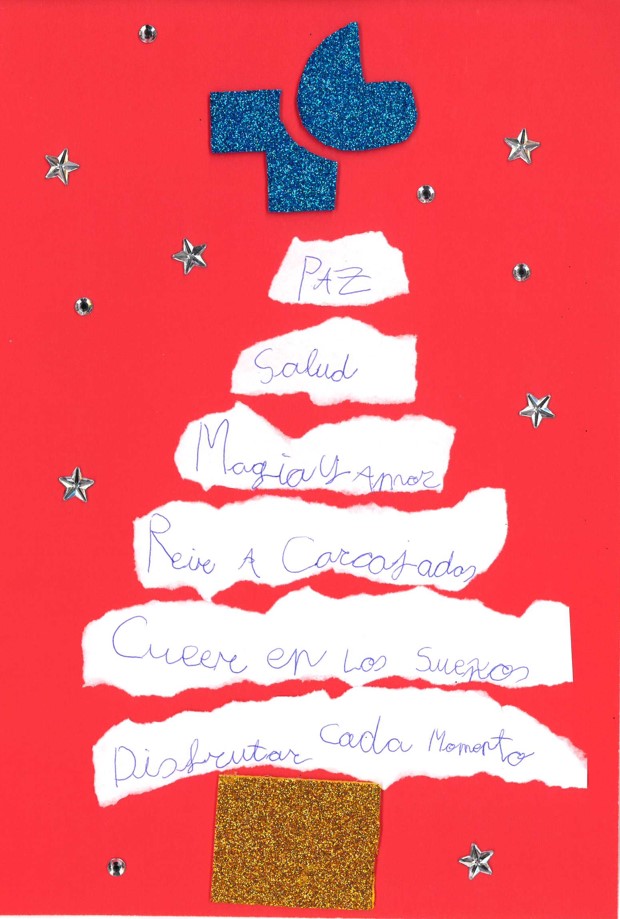 PAZ
Salud
Magia y Amor
Reir A Carcajadas
Creer en Los Sueños
Disfrutar cada Momento